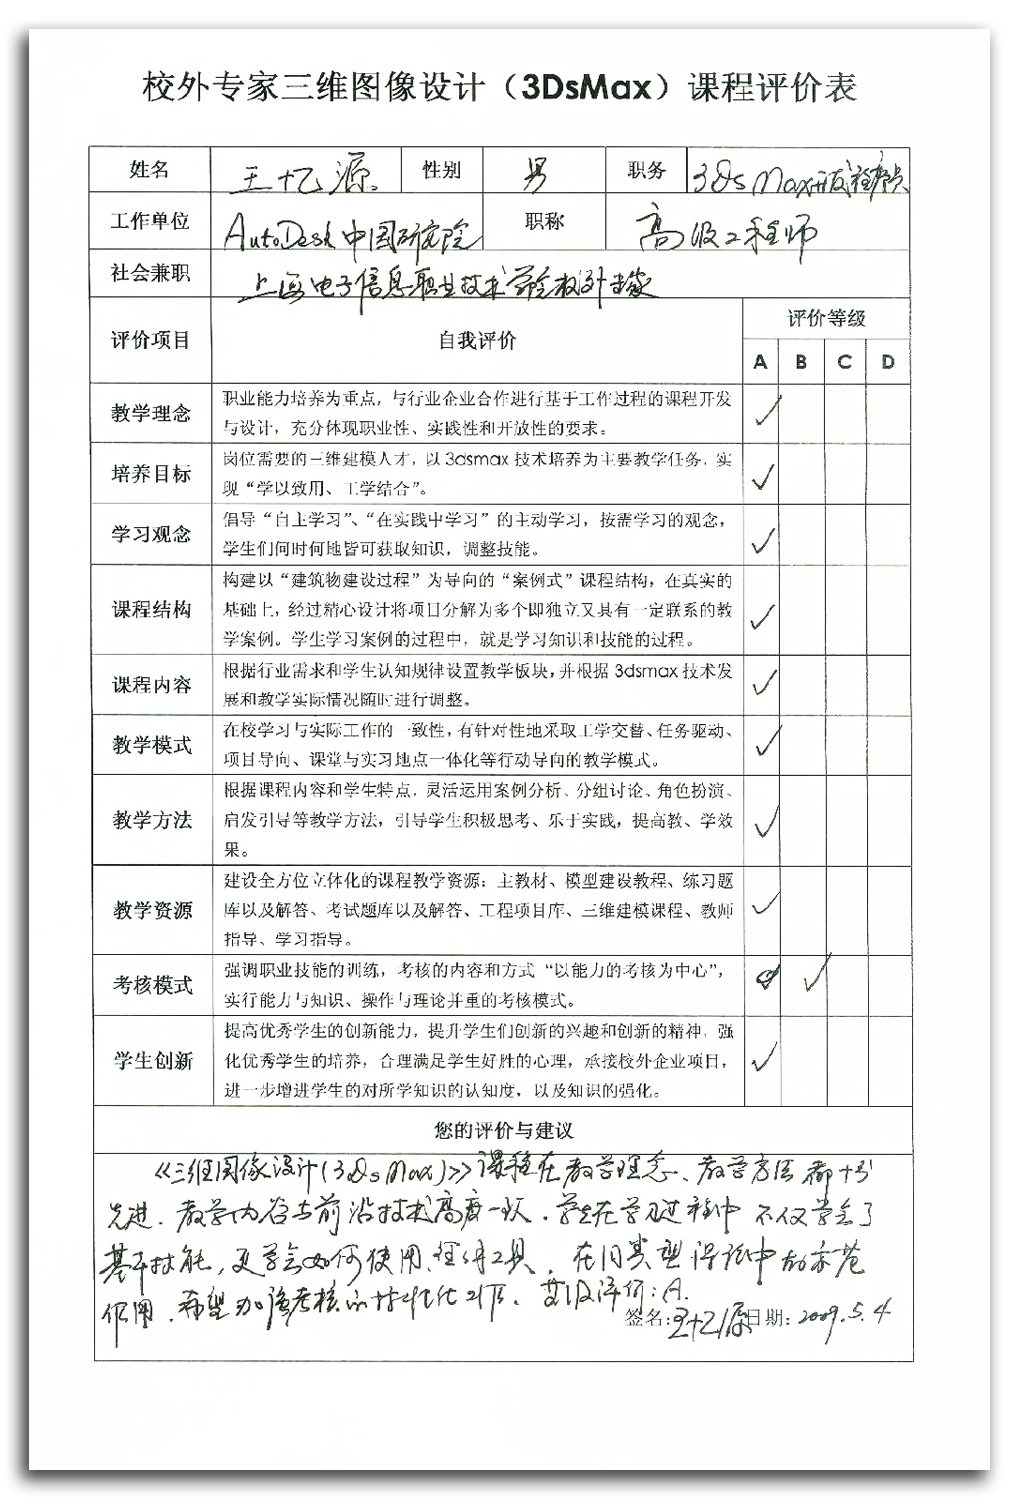 校外专家三维图像设计（3DsMax）课程评价表
姓名 王忆源 性别 男 职务 3ds Max开发程序员
工作单位 AutoDesk中国研究院 职称 高级工程师
社会兼职 上海电子信息职业技术学院校外专家
评价项目 自我评价 评价等级
A B C D
教学理念 职业能力培养为重点，与行业企业合作进行基于工作过程的课程开发
与设计，充分体现职业性、实践性和开放性的要求。
培养目标 岗位需要的三维建模人才，以 3dsmax 技术培养为主要教学任务，实
现“学以致用、工学结合”。
学习观念 倡导“自主学习”、“在实践中学习”的主动学习，按需学习的观念，
学生们何时何地皆可获取知识，调整技能。
课程结构 构建以“建筑物建设过程”为导向的“案例式”课程结构，在真实的
基础上，经过精心设计将项目分解为多个即独立又具有一定联系的教
学案例。学生学习案例的过程中，就是学习知识和技能的过程。
课程内容 根据行业需求和学生认知规律设置教学板块，并根据 3dsmax 技术发
展和教学实际情况随时进行调整。
教学模式 在校学习与实际工作的一致性，有针对性地采取工学交替、任务驱动、
项目导向、课堂与实习地点一体化等行动导向的教学模式。
教学方法 根据课程内容和学生特点，灵活运用案例分析、分组讨论、角色扮演、
启发引导等教学方法，引导学生积极思考、乐于实践，提高教、学效
果。
教学资源 建设全方位立体化的课程教学资源：主教材、模型建设教程、练习题
库以及解答、考试题库以及解答、工程项目库、三维建模课程、教师
指导、学习指导。
考核模式 强调职业技能的训练，考核的内容和方式“以能力的考核为中心”，
实行能力与知识、操作与理论并重的考核模式。
学生创新 提高优秀学生的创新能力，提升学生们创新的兴趣和创新的精神，强
化优秀学生的培养，合理满足学生好胜的心理，承接校外企业项目，
进一步增进学生的对所学知识的认知度，以及知识的强化。
您的评价与建议
《三维图像设计(3ds Max)》课程在教学理念、教学方法都十分
先进．教学内容与前沿技术高度一致．学生在学习过程中不仅学会了
基本技能，更学会如何使用、工具．在同类型课程中的示范
作用．希望加强考核的工作．评价：A.
签名：王忆源 日期：2009.5.4